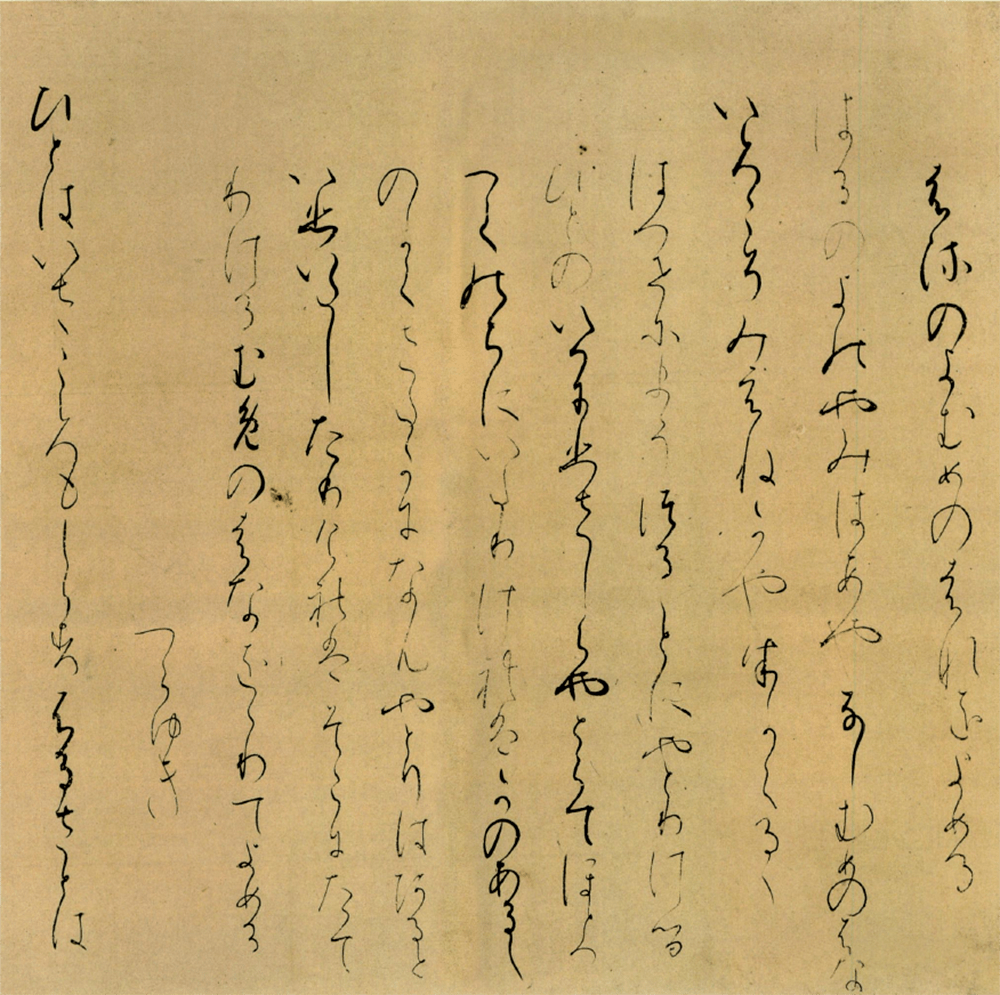 はるのよむめのはなをよめる
はるのよのやみはあやなしむめのはな
いろこそみえねかやはかくるゝ
はつせにまうつることにやとりける
ひとのいへにひさしくやとらてほとへ
てのちにいたりけれはかのあるし
のかくさたかになんやとりはあると
いひいたしたりけれはそこにたて
りけるむめのはなををりてよめる
つらゆき
ひとはいさこゝろもしらすふるさとは